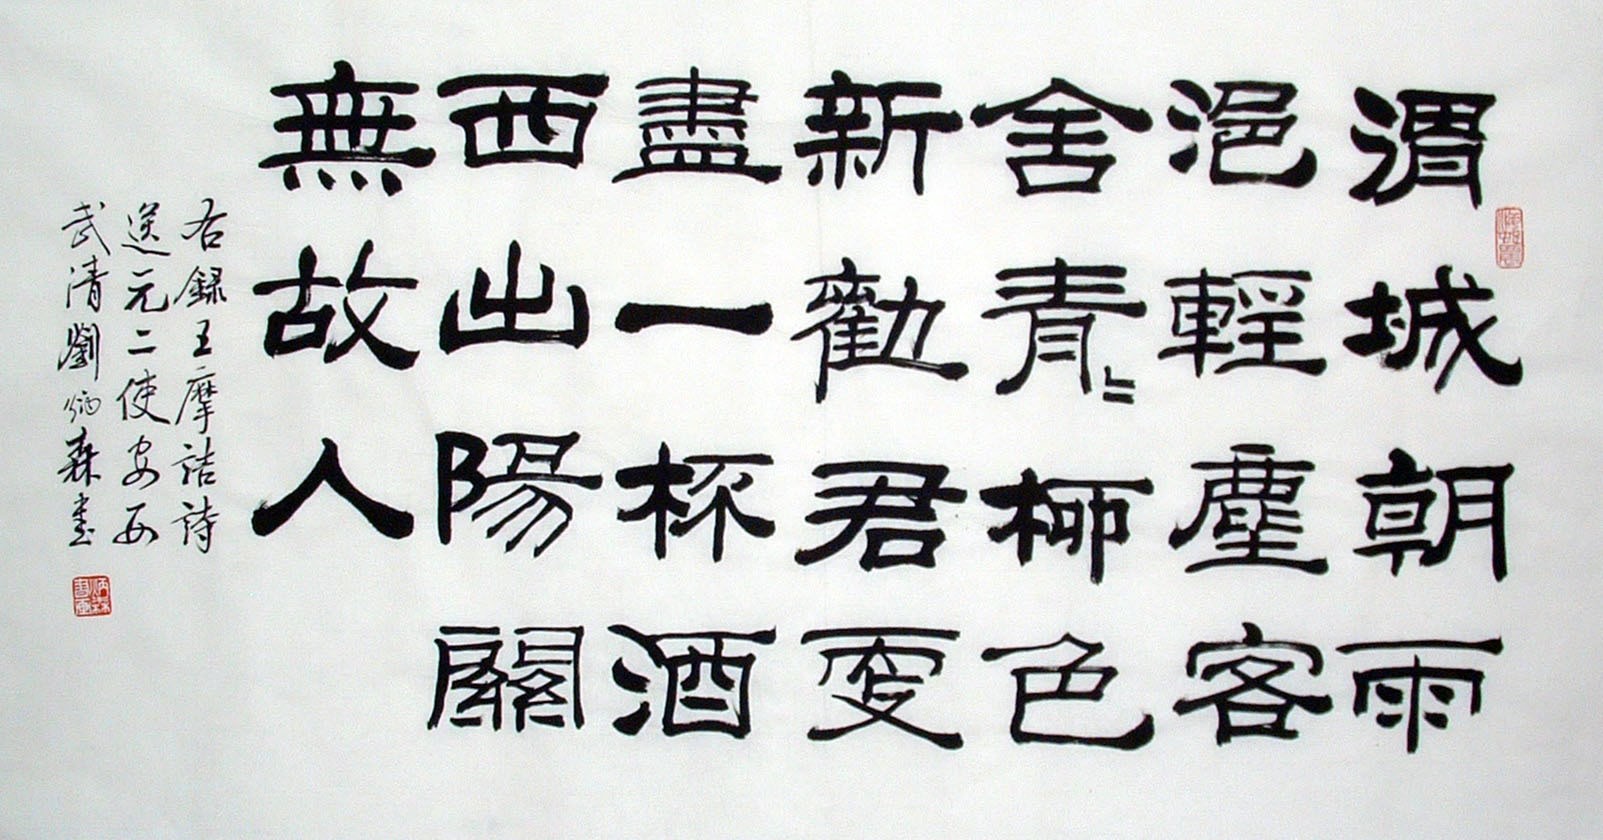 渭城朝雨
浥輕塵客
舍青〻柳色
新勸君更
盡一杯酒
西出陽關
無故人
右錄王摩詰詩
送元二使安西
武清劉炳森書
炳森書畫